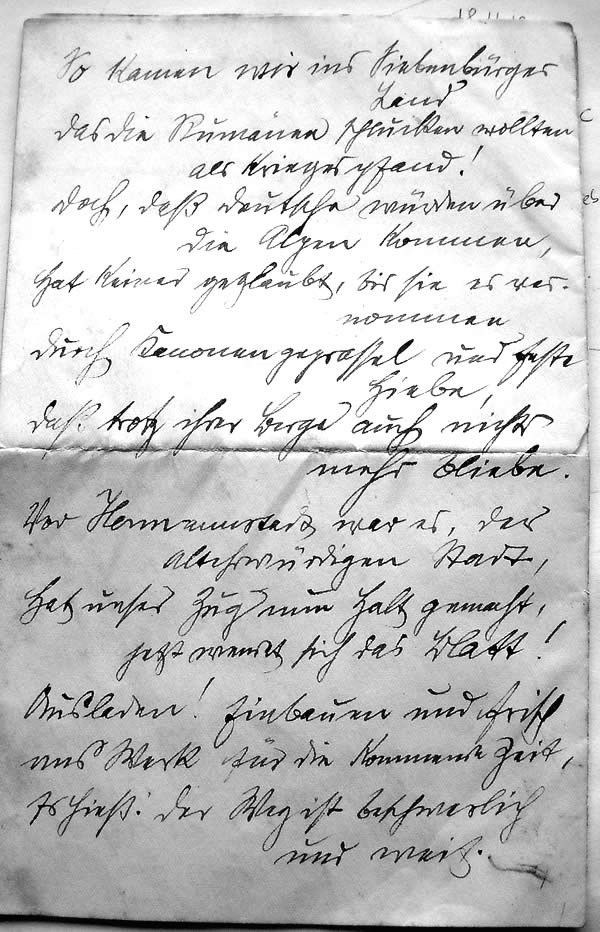 18.11.18
So kamen wir ins Siebenbürger
Land
das die Rumänen schlucken wollten
als Kriegespfand!
Doch, daß deutsche würden über
die Alpen kommen,
hat keiner geglaubt, bis sie es ver-
nommen
durch Kanonengeprassel und feste
Hiebe,
daß trotz ihrer Berge auch nichts
mehr bliebe.
Vor Hermannstadt war es, der
altehrwürdigen Stadt,
Hat unser Zug nun Halt gemacht,
jetzt wendet sich das Blatt!
Ausladen! Einbauen und frisch
ans Werk für die kommende Zeit,
Es hieß: der Weg ist beschwerlich
und weit.